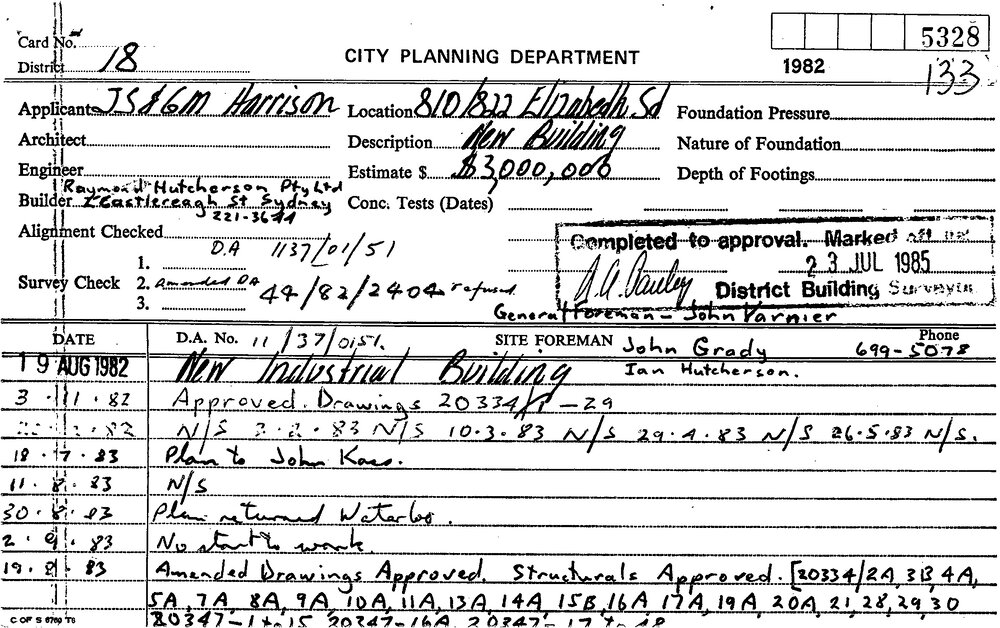 Card No.
District 18
CITY PLANNING DEPARTMENT
5328
1982
133
Applicant JS & GM Harrison
Location 810/822 Elizabedh Sd
Foundation Pressure
Architect
Description New Building
Nature of Foundation
Engineer
Estimate $ $3,000,000
Depth of Footings
Raymond Hutcherson Pty Ltd
Builder Castlereagh St Sydney
221-3644
Conc. Tests (Dates)
Alignment Checked
Completed to approval. Marked off
23 JUL 1985
District Building Surveyor
1. DA 1137/01/51
Survey Check 2. Amended DA 44/82/2404 refused
3.
General Foreman - John Varnier
DATE
D.A. No. 11/37/0151.
SITE FOREMAN John Grady
Phone
699-5078
Ian Hutcherson.
19 AUG 1982 New Industrial Building
3.11.82 Approved Drawings 20334/1-29
N/S 3.2.83 N/S 10.3.83 N/S 29.4.83 N/S 26.5.83 N/S.
18.7.83 Plan to John Kass.
11.8.83 N/S
30.8.83 Plan returned Waterloo.
2.9.83 No start to work.
19.8.83 Amended Drawings Approved. Structurals Approved. [20334/2A, 3B, 4A,
5A, 7A, 8A, 9A, 10A, 11A, 13A, 14A, 15B, 16A, 17A, 19A, 20A, 21, 28, 29, 30
20347-1 to 15, 20347-16A, 20347-17 to 18
C OF S 6760 T8